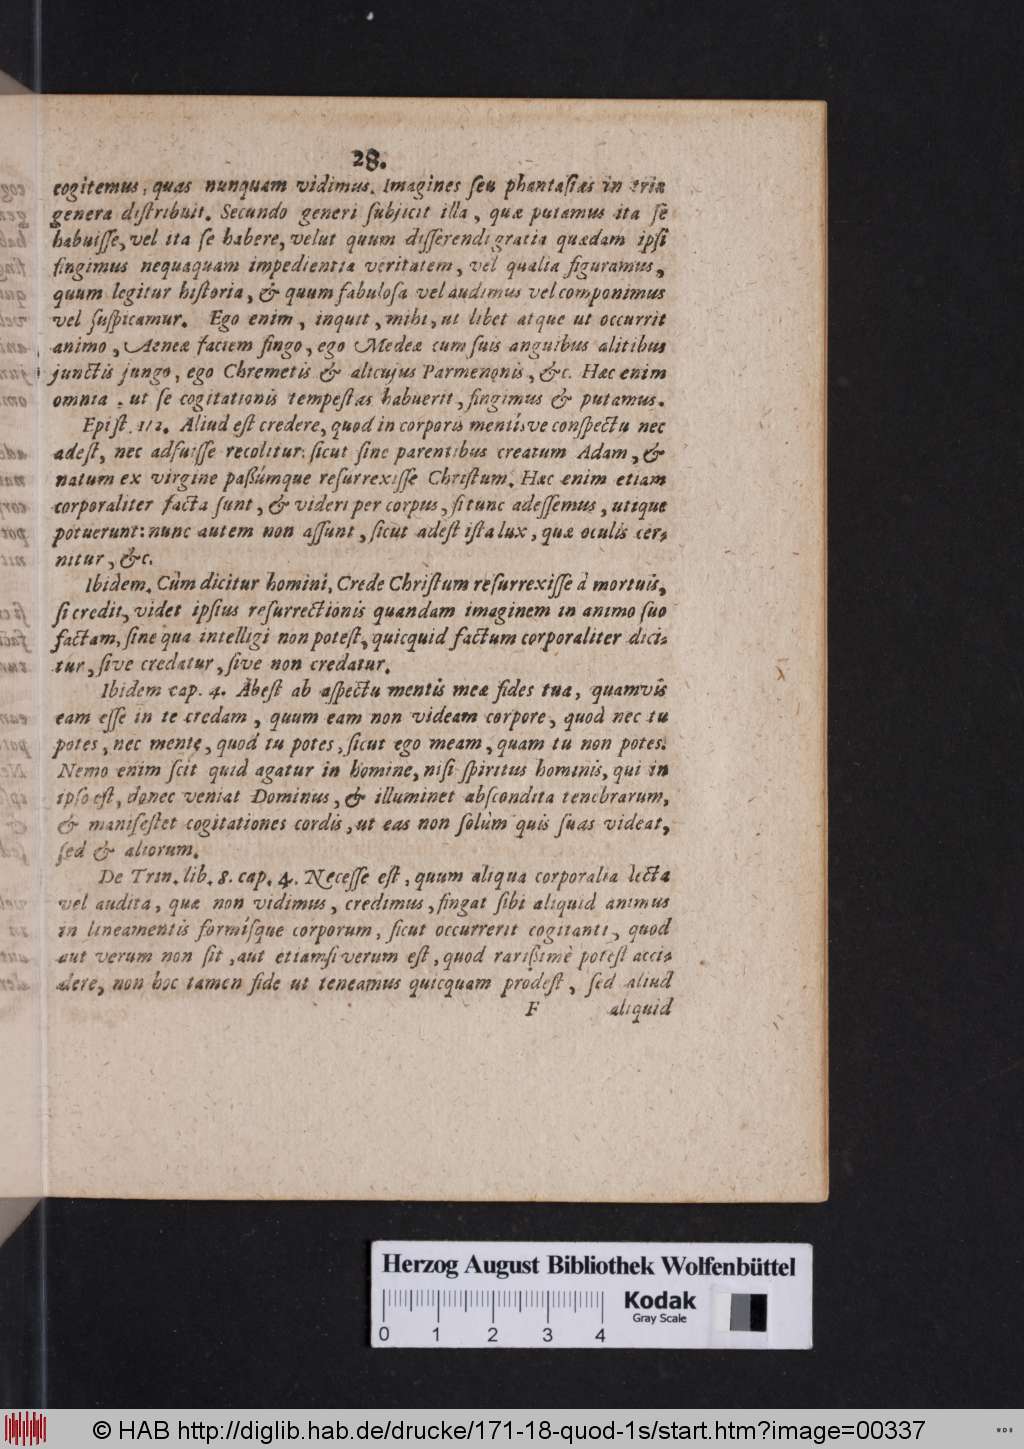 28.
cogitemus, quas nunquam vidimus. Imagines ſeu phantaſias in tria
genera diſtribuit. Secundo generi ſubjicit illa, quæ putamus ita ſe
habuiſſe, vel ita ſe habere, velut quum diſſerendi gratia quædam ipſi
fingimus nequaquam impedientia veritatem, vel qualia figuramus,
quum legitur hiſtoria, & quum fabuloſa vel audimus vel componimus
vel ſuſpicamur. Ego enim, inquit, mihi, ut libet atque ut occurrit
animo, Aeneæ faciem fingo, ego Medeæ cum ſuis anguibus alitibus
junctis jungo, ego Chremetis & alicujus Parmenonis, &c. Hæc enim
omnia, ut ſe cogitationis tempeſtas habuerit, fingimus & putamus.
Epiſt. 112. Aliud eſt credere, quod in corporis mentísve conſpectu nec
adeſt, nec adfuiſſe recolitur: ſicut ſine parentibus creatum Adam, &
natum ex virgine paßúmque reſurrexiſſe Chriſtum. Hæc enim etiam
corporaliter facta ſunt, & videri per corpus, ſi tunc adeſſemus, utique
potuerunt: nunc autem non aſſunt, ſicut adeſt iſta lux, quæ oculis cer⸗
nitur, &c.
Ibidem. Cùm dicitur homini, Crede Chriſtum reſurrexiſſe à mortuis,
ſi credit, videt ipſius reſurrectionis quandam imaginem in animo ſuo
factam, ſine qua intelligi non poteſt, quicquid factum corporaliter dici⸗
tur, ſive credatur, ſive non credatur.
Ibidem cap. 4. Abeſt ab aſpectu mentis meæ fides tua, quamvis
eam eſſe in te credam, quum eam non videam corpore, quod nec tu
potes, nec mente, quod tu potes, ſicut ego meam, quam tu non potes.
Nemo enim ſcit quid agatur in homine, niſi ſpiritus hominis, qui in
ipſo eſt, donec veniat Dominus, & illuminet abſcondita tenebrarum,
& manifeſtet cogitationes cordis, ut eas non ſolùm quis ſuas videat,
ſed & aliorum.
De Trin. lib. 8. cap. 4. Neceſſe eſt, quum aliqua corporalia lecta
vel audita, quæ non vidimus, credimus, fingat ſibi aliquid animus
in lineamentis formíſque corporum, ſicut occurrerit cogitanti, quod
aut verum non ſit, aut etiamſi verum eſt, quod rarißimè poteſt acci⸗
dere, non hoc tamen fide ut teneamus quicquam prodeſt, ſed aliud
F aliquid
Herzog August Bibliothek Wolfenbüttel
0 1 2 3 4
Kodak
Gray Scale
© HAB http://diglib.hab.de/drucke/171-18-quod-1s/start.htm?image=00337